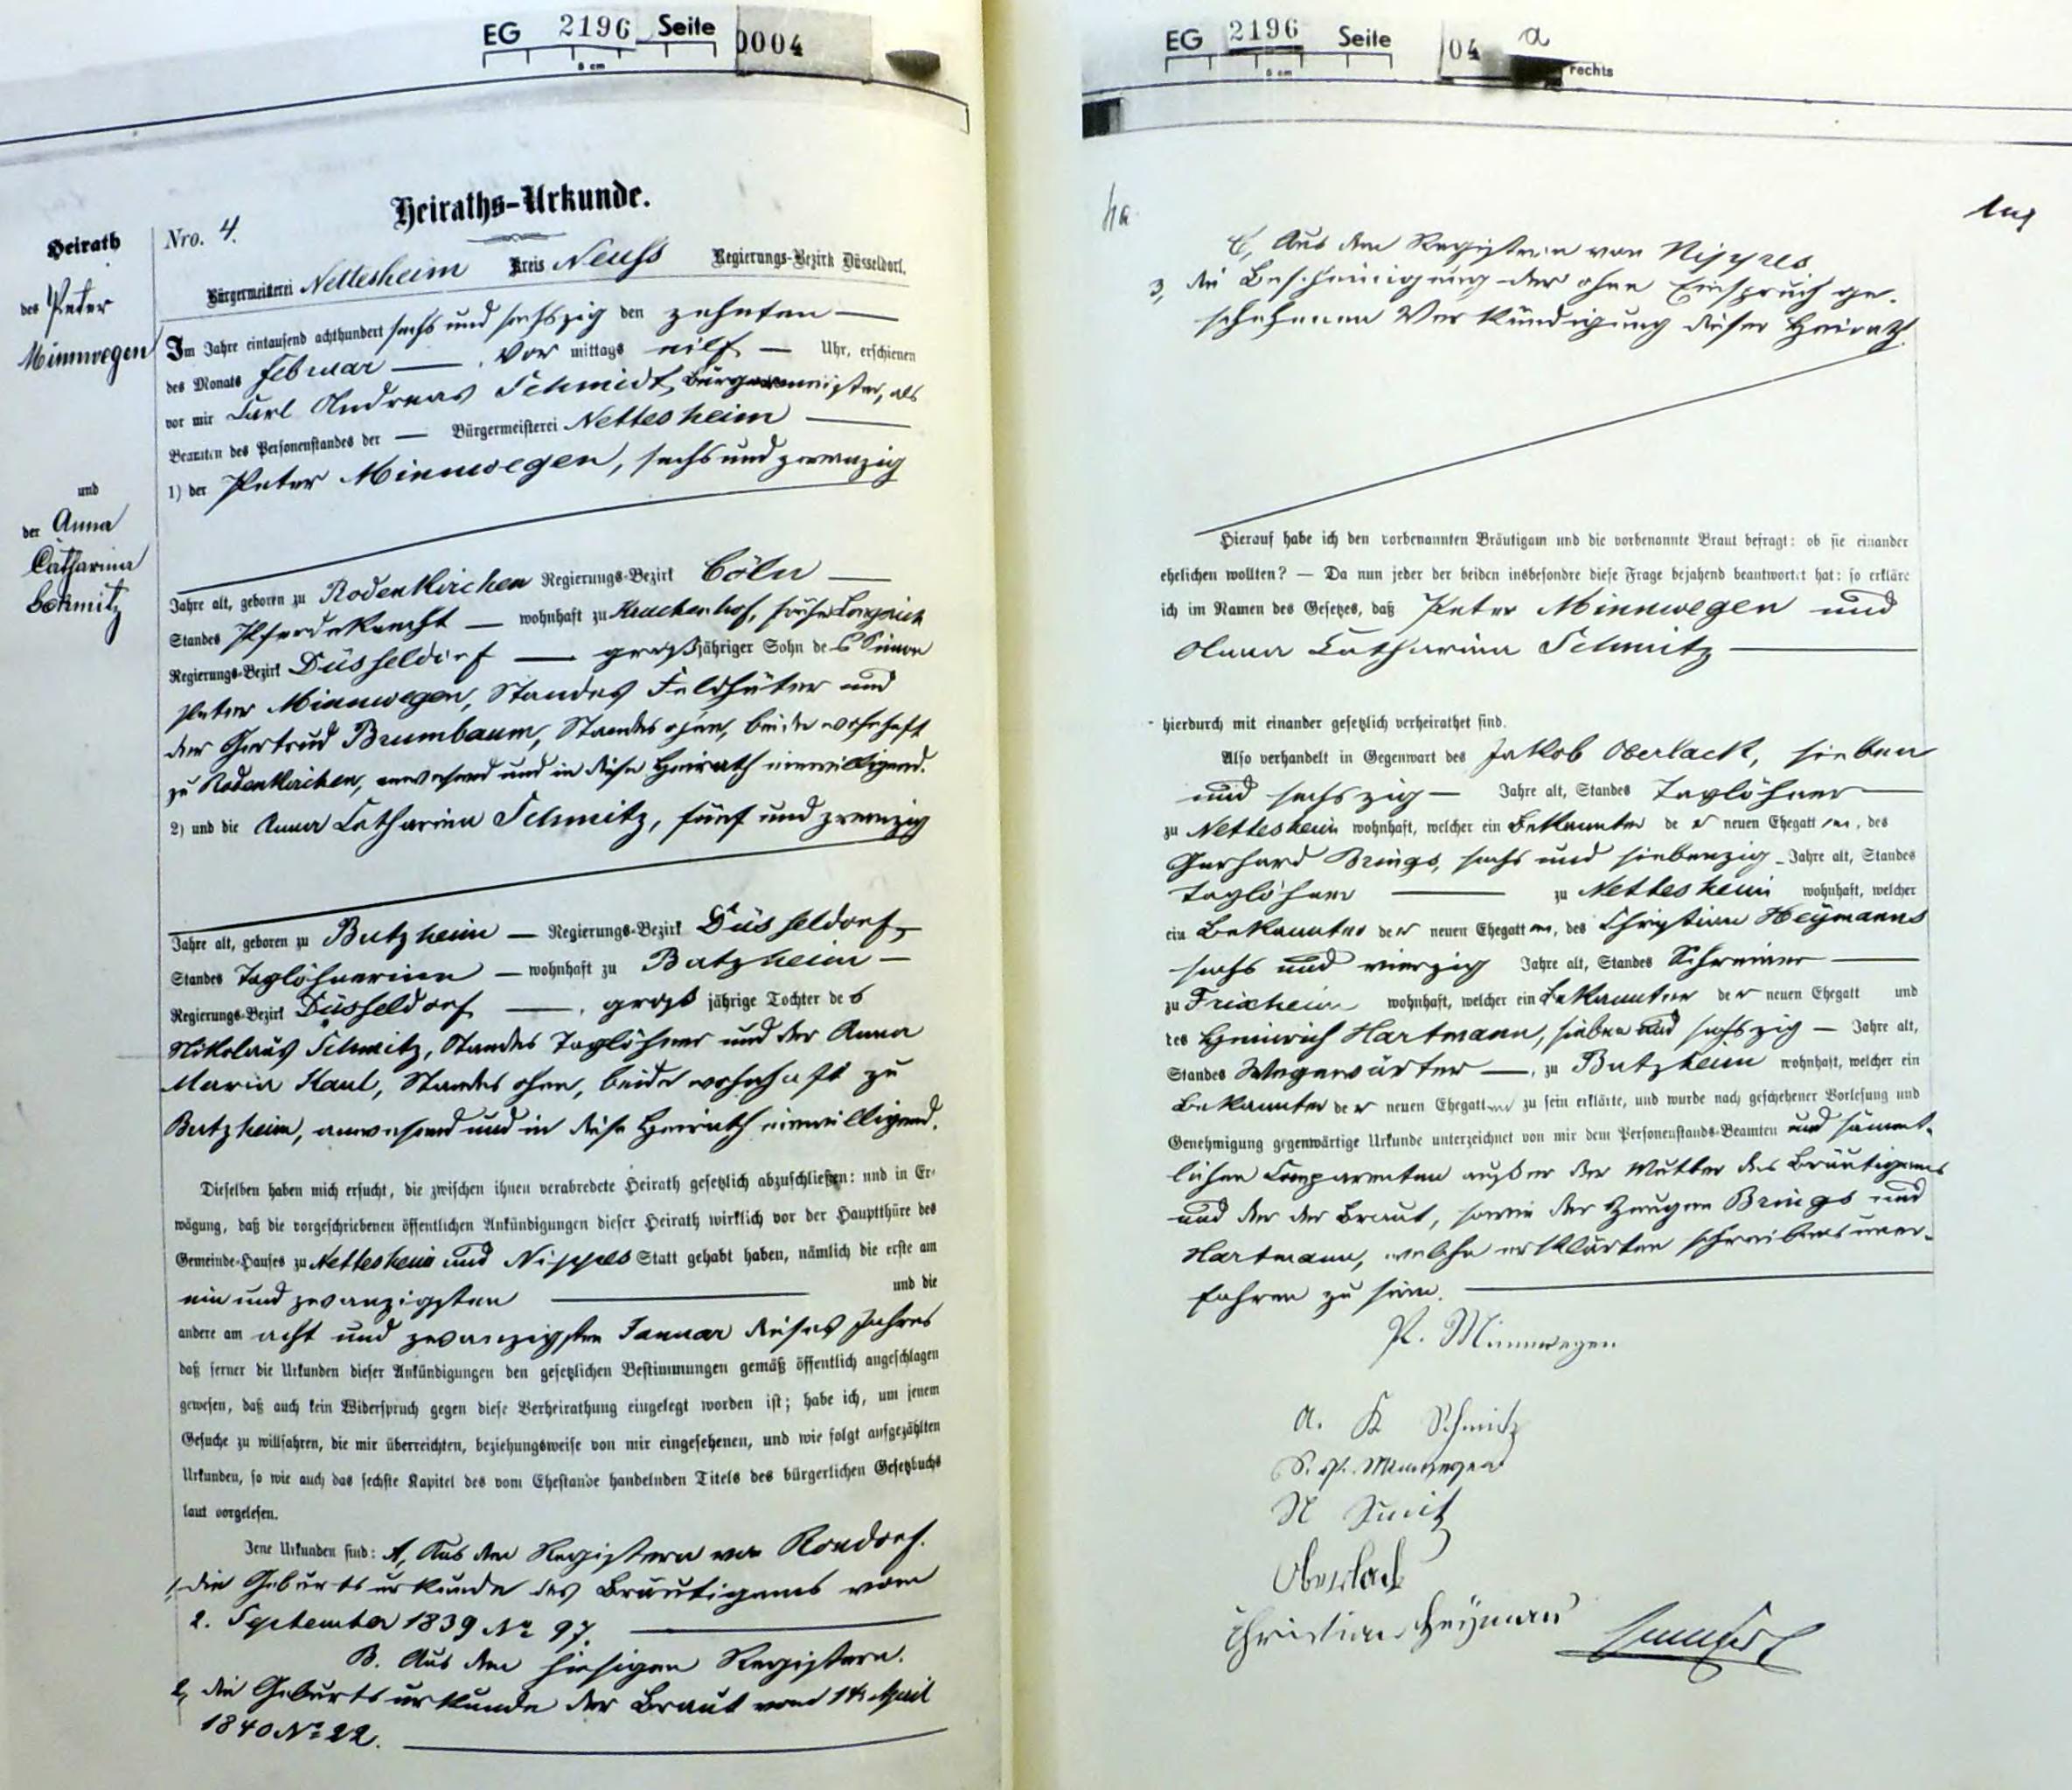 EG 2196 Seite 0004
Heiraths-Urkunde.
Heirath
des Peter
Minnwegen
und
der Anna
Catharina
Schmitz
Nro. 4.
Bürgermeisterei Nettesheim Kreis Neuss Regierungs-Bezirk Düsseldorf.
Im Jahre eintausend achthundert sechs und sechszig den zehnten
des Monats Februar, Vor mittags eilf Uhr, erschienen
vor mir Carl Andreas Schmidt, Bürgermeister, als
Beamten des Personenstandes der Bürgermeisterei Nettesheim
1) der Peter Minnwegen, sechs und zwanzig
Jahre alt, geboren zu Rodenkirchen Regierungs-Bezirk Cöln
Standes Pferdeknecht wohnhaft zu
Regierungs-Bezirk Düsseldorf großjähriger Sohn des Simon
Peter Minnwegen, Standes Feldhüter und
der Gertrud Brumbaum, Standes ohne, beide wohnhaft
zu Rodenkirchen, anwesend und in diese Heirath einwilligend.
2) und die Anna Catharina Schmitz, fünf und zwanzig
Jahre alt, geboren zu Butzheim Regierungs-Bezirk Düsseldorf,
Standes Taglöhnerinn wohnhaft zu Butzheim
Regierungs-Bezirk Düsseldorf, groß jährige Tochter des
Nikolaus Schmitz, Standes Taglöhner und der Anna
Maria Kaul, Standes ohne, beide wohnhaft zu
Butzheim, anwesend und in diese Heirath einwilligend.
Dieselben haben mich ersucht, die zwischen ihnen verabredete Heirath gesetzlich abzuschließen: und in Er-
wägung, daß die vorgeschriebenen öffentlichen Ankündigungen dieser Heirath wirklich vor der Hauptthüre des
Gemeinde-Hauses zu Nettesheim und Nippes Statt gehabt haben, nämlich die erste am
ein und zwanzigsten und die
andere am acht und zwanzigsten Januar dieses Jahres
daß ferner die Urkunden dieser Ankündigungen den gesetzlichen Bestimmungen gemäß öffentlich angeschlagen
gewesen, daß auch kein Widerspruch gegen diese Verheirathung eingelegt worden ist; habe ich, um jenem
Gesuche zu willfahren, die mir überreichten, beziehungsweise von mir eingesehenen, und wie folgt aufgezählten
Urkunden, so wie auch das sechste Kapitel des vom Ehestande handelnden Titels des bürgerlichen Gesetzbuchs
laut vorgelesen.
Jene Urkunden sind: A, Aus den Registern von Rondorf.
1, die Geburtsurkunde des Bräutigams vom
2. September 1839 No 97.
B. Aus den hiesigen Registern.
2, die Geburtsurkunde der Braut vom April
1840 No 22.
EG 2196 Seite 04 a
rechts
C, Aus den Registern von Nippes
3, die Bescheinigung der ohne Einspruch ge-
schehenen Verkündigung dieser Heirath.
Hierauf habe ich den vorbenannten Bräutigam und die vorbenannte Braut befragt: ob sie einander
ehelichen wollten? — Da nun jeder der beiden insbesondre diese Frage bejahend beantwortet hat: so erkläre
ich im Namen des Gesetzes, daß Peter Minnwegen und
Anna Catharina Schmitz
hierdurch mit einander gesetzlich verheirathet sind.
Also verhandelt in Gegenwart des Jakob Oberlack, sieben
und sechszig Jahre alt, Standes Taglöhner
zu Nettesheim wohnhaft, welcher ein Bekannter der neuen Ehegatten, des
Gerhard Brings, sechs und siebenzig Jahre alt, Standes
Taglöhner zu Nettesheim wohnhaft, welcher
ein Bekannter der neuen Ehegatten, des Christian Heymanns
sechs und vierzig Jahre alt, Standes Schreiner
zu Frixheim wohnhaft, welcher ein Bekannter der neuen Ehegatt und
des Heinrich Hartmann, sieben und sechszig Jahre alt,
Standes Wegewärter, zu Butzheim wohnhaft, welcher ein
Bekannter der neuen Ehegatten zu sein erklärte, und wurde nach geschehener Vorlesung und
Genehmigung gegenwärtige Urkunde unterzeichnet von mir dem Personenstands-Beamten und sämmt-
lichen Comparenten außer der Mutter des Bräutigams
und der der Braut, sowie der Zeugen Brings und
Hartmann, welche erklärten schreibens uner-
fahren zu sein.
P. Minnwegen
A. K Schmitz
S. P. Minnwegen
N Smitz
Oberlack
Christian Heymans